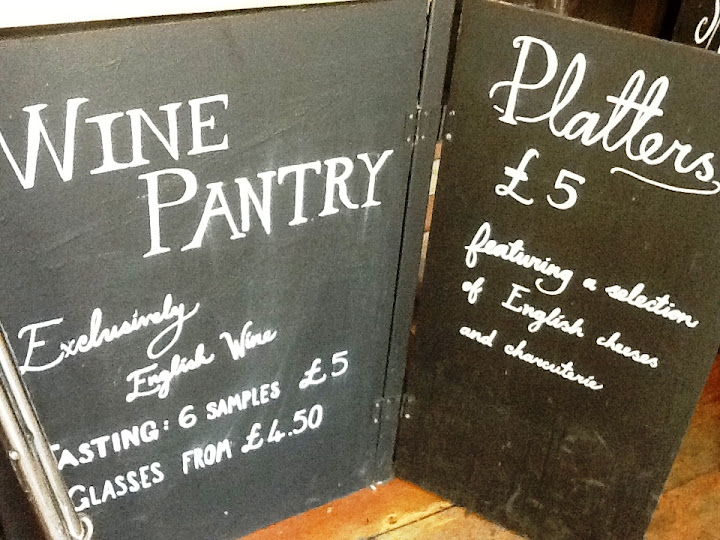 WINE
PANTRY
Exclusively
English Wine
TASTING: 6 SAMPLES £5
GLASSES FROM £4.50
Platters
£5
featuring a selection
of English cheeses
and charcuterie